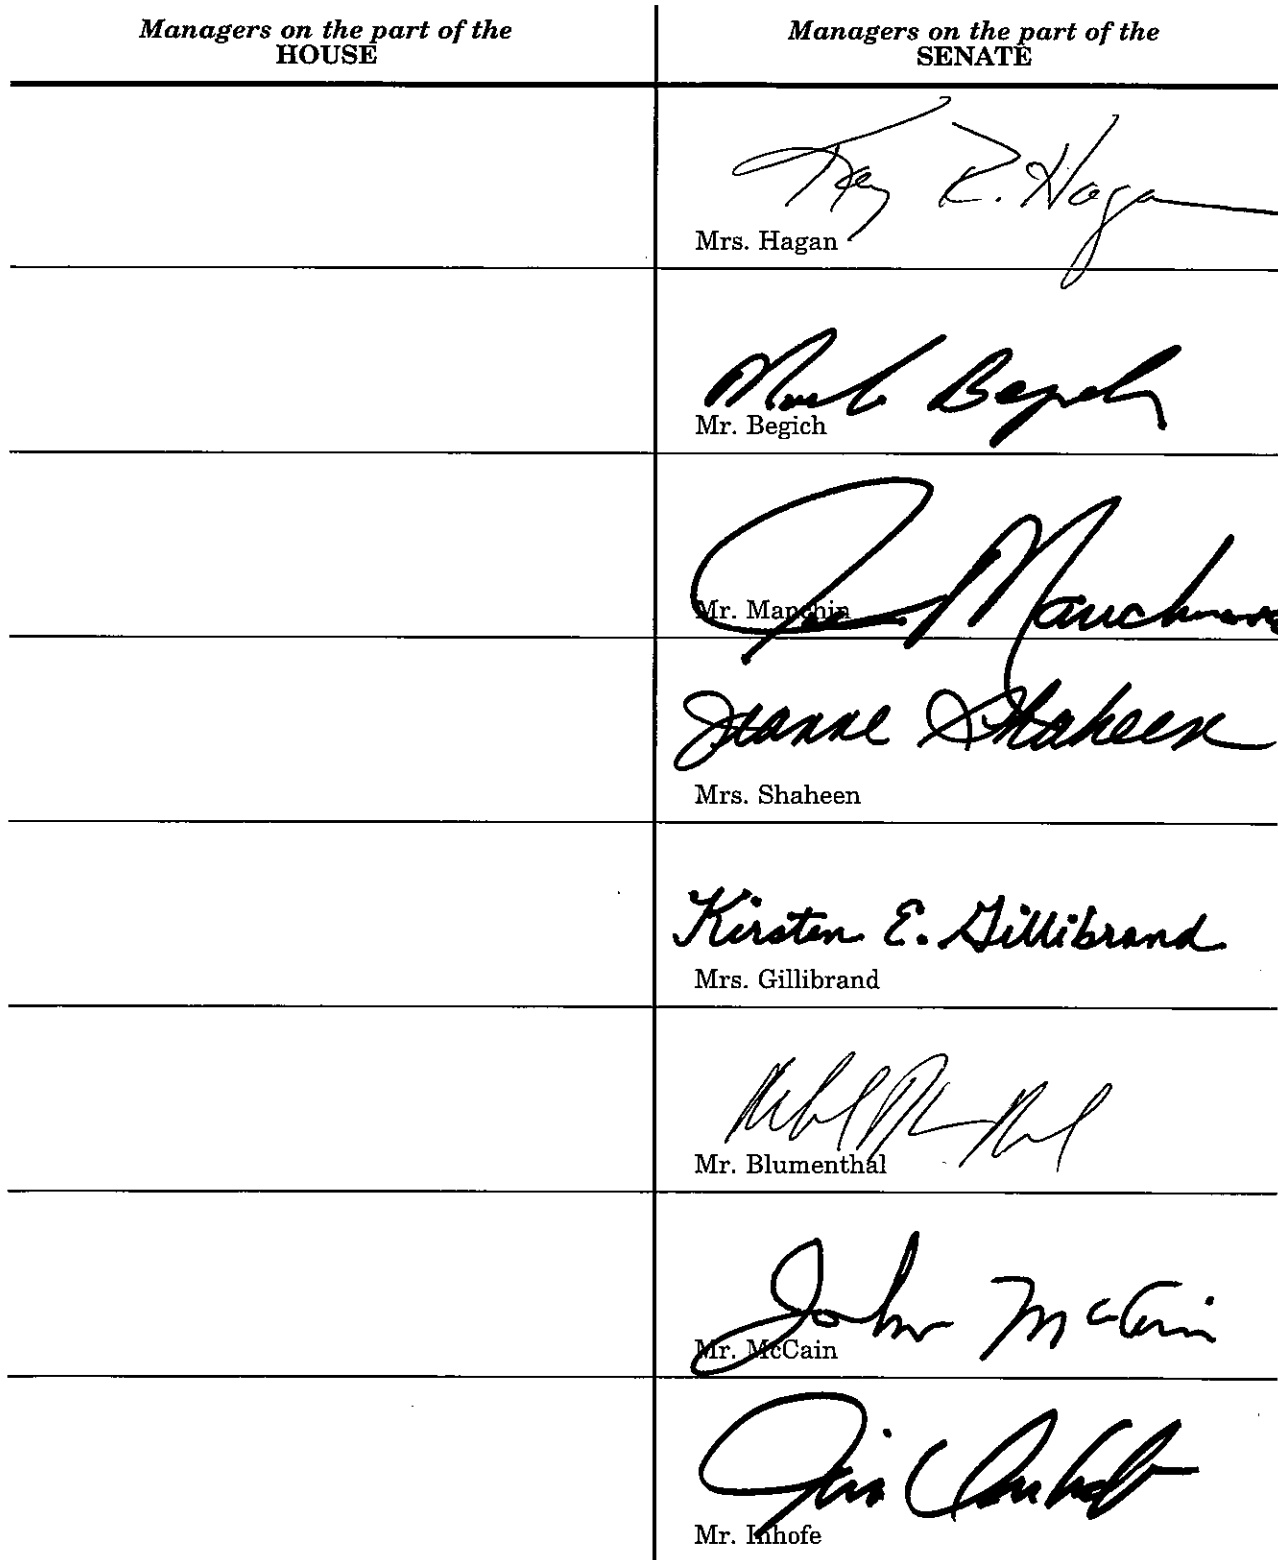 Managers on the part of the
HOUSE
Managers on the part of the
SENATE
Kay R. Hagan
Mrs. Hagan
Mark Begich
Mr. Begich
Joe Manchin
Mr. Manchin
Jeanne Shaheen
Mrs. Shaheen
Kirsten E. Gillibrand
Mrs. Gillibrand
Mr. Blumenthal
John McCain
Mr. McCain
Jim Inhofe
Mr. Inhofe